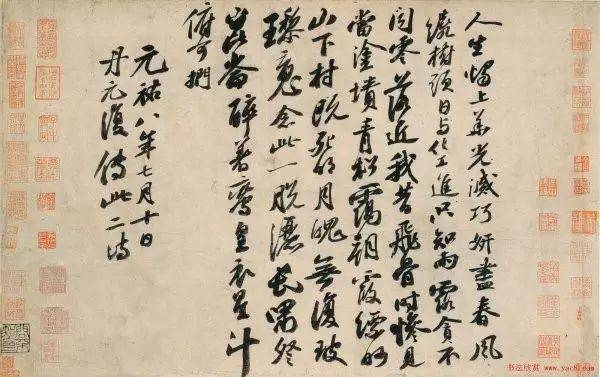 人生燭上華光滅巧妍盡春風
繞樹頭日與化工進只知雨露貪不
聞零落近我昔飛骨時慘見
當塗墳青松靄朝霞縹緲
山下村既死明月魄無復玻
瓈魂念此一脫灑長嘯登
崑崙醉著鸞皇衣星斗
俯可捫
元祐八年七月十日
丹元復傳此二詩
书法欣赏 www.yac8.com